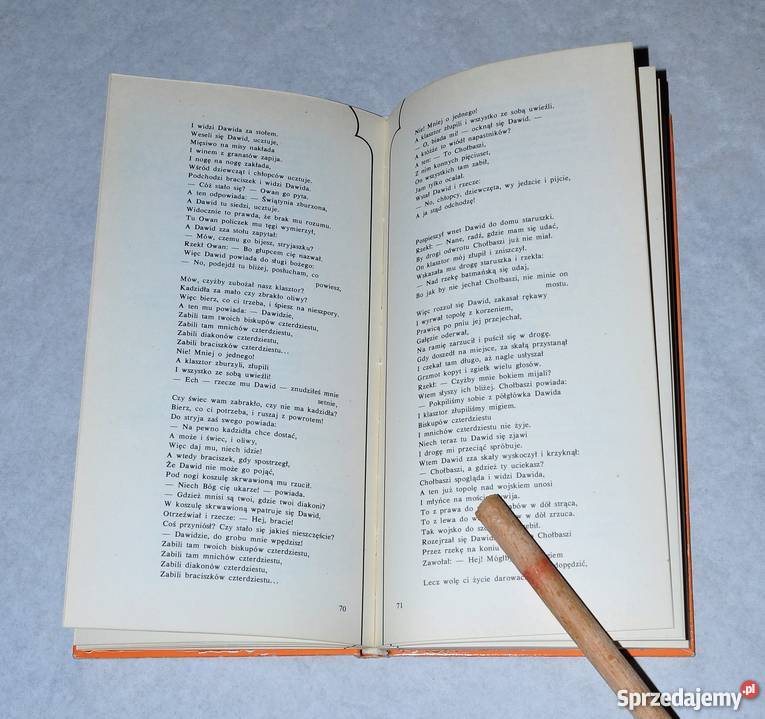 I widzi Dawida za stołem.
Weseli się Dawid, ucztuje,
Mięsiwo na misy nakłada
I winem z granatów zapija.
I nogę na nogę zakłada,
Wśród dziewcząt i chłopców ucztuje.
Podchodzi braciszek i widzi Dawida.
— Cóż stało się? — Owan go pyta,
A ten odpowiada: — Świątynia zburzona,
A Dawid tu siedzi, ucztuje.
Widocznie to prawda, że brak mu rozumu.
Tu Owan policzek mu tęgi wymierzył,
A Dawid zza stołu zapytał:
— Mów, czemu go bijesz, stryjaszku?
Rzekł Owan: — Bo głupcem cię nazwał.
Więc Dawid powiada do sługi bożego:
— No, podejdź tu bliżej, posłucham, co
powiesz,
Mów, czyżby zubożał nasz klasztor?
Kadzidła za mało czy zbrakło oliwy?
Więc bierz, co ci trzeba, i śpiesz na nieszpory.
A ten mu powiada: — Dawidzie,
Zabili tam twoich biskupów czterdziestu,
Zabili tam mnichów czterdziestu,
Zabili diakonów czterdziestu,
Zabili braciszków czterdziestu...
Nie! Mniej o jednego!
A klasztor zburzyli, złupili
I wszystko ze sobą uwieźli!
— Ech — rzecze mu Dawid — znudziłeś mnie
setnie,
Czy świec wam zabrakło, czy nie ma kadzidła?
Bierz, co ci potrzeba, i ruszaj z powrotem!
Do stryja zaś swego powiada:
— Na pewno kadzidła chce dostać,
A może i świec, i oliwy,
Więc daj mu, niech idzie!
A wtedy braciszek, gdy spostrzegł,
Że Dawid nie może go pojąć,
Pod nogi koszulę skrwawioną mu rzucił.
— Niech Bóg cię ukarze! — powiada.
— Gdzież mnisi są twoi, gdzie twoi diakoni?
W koszulę skrwawioną wpatruje się Dawid,
Otrzeźwiał i rzecze: — Hej, bracie!
Coś przyniósł? Czy stało się jakieś nieszczęście?
— Dawidzie, do grobu mnie wpędzisz!
Zabili tam twoich biskupów czterdziestu,
Zabili tam mnichów czterdziestu,
Zabili diakonów czterdziestu,
Zabili braciszków czterdziestu...
70
Nie! Mniej o jednego!
A klasztor złupili i wszystko ze sobą uwieźli.
— O, biada mi! — ocknął się Dawid. —
A któż to wiódł napastników?
A ten: — To Chołbaszi,
Z nim konnych pięciuset,
On wszystkich tam zabił,
Jam tylko ocalał.
Wstał Dawid i rzecze:
— No, chłopcy, dziewczęta, wy jedzcie i pijcie,
A ja stąd odchodzę!
Pospieszył wnet Dawid do domu staruszki.
Rzekł: — Nane, radź, gdzie mam się udać,
By drogi odwrotu Chołbaszi już nie miał.
On klasztor mój złupił i zniszczył.
Wskazała mu drogę staruszka i rzekła:
— Nad rzekę batmańską się udaj,
Bo jak by nie jechał Chołbaszi, nie minie on
mostu.
Więc rozzuł się Dawid, zakasał rękawy
I wyrwał topolę z korzeniem,
Prawicą po pniu jej przejechał,
Gałęzie oderwał,
Na ramię zarzucił i puścił się w drogę.
Gdy doszedł na miejsce, za skałą przystanął
I czekał tam długo, aż nagle usłyszał
Grzmot kopyt i zgiełk wielu głosów.
Rzekł: — Czyżby mnie bokiem mijali?
Wtem słyszy ich bliżej. Chołbaszi powiada:
— Pokpiliśmy sobie z półgłówka Dawida
I klasztor złupiliśmy migiem.
Biskupów czterdziestu
I mnichów czterdziestu nie żyje.
Niech teraz tu Dawid się zjawi
I drogę mi przeciąć spróbuje.
Wtem Dawid zza skały wyskoczył i krzyknął:
— Chołbaszi, a gdzież ty uciekasz?
Chołbaszi spogląda i widzi Dawida,
A ten już topolę nad wojskiem unosi
I młyńce na moście
To z prawa do w dół strąca,
To z lewa do w dół zrzuca.
Tak wojsko do
Rozejrzał się Dawid Chołbaszi
Przez rzekę na koniu
Zawołał: — Hej! Mógłby dopędzić,
Lecz wolę ci życie darować
71
Sprzedajemy.pl